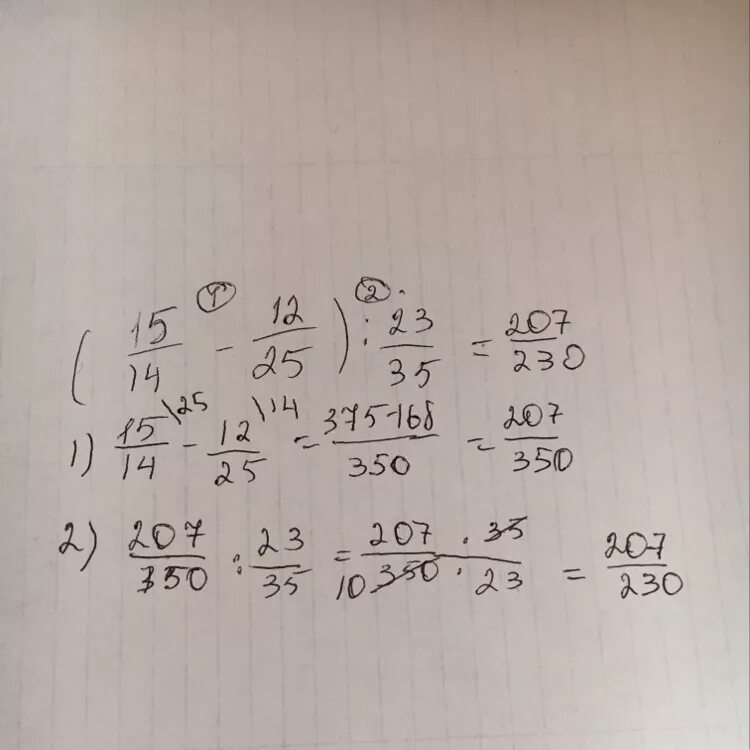 ① ②
(15/14 - 12/25) : 23/35 = 207/230
1) 15/14 \25 - 12/25 \14 = 375-168/350 = 207/350
2) 207/350 : 23/35 = 207 · 35/10 350 · 23 = 207/230